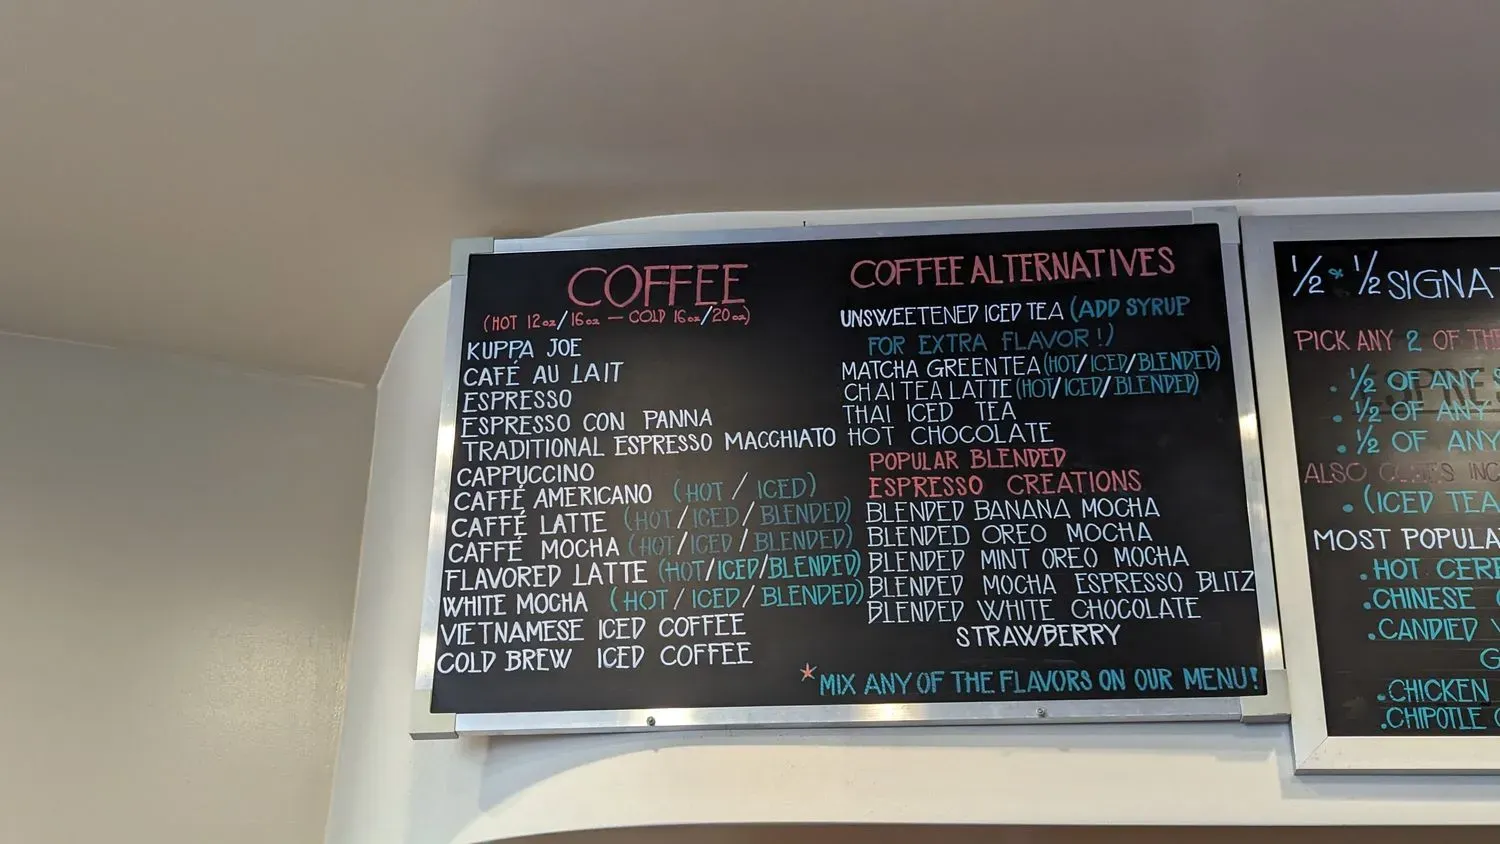 COFFEE
(HOT 12oz/16oz — COLD 16oz/20oz)
KUPPA JOE
CAFÉ AU LAIT
ESPRESSO
ESPRESSO CON PANNA
TRADITIONAL ESPRESSO MACCHIATO
CAPPUCCINO
CAFFÉ AMERICANO (HOT / ICED)
CAFFÉ LATTE (HOT/ICED/BLENDED)
CAFFÉ MOCHA (HOT/ICED/BLENDED)
FLAVORED LATTE (HOT/ICED/BLENDED)
WHITE MOCHA (HOT/ICED/BLENDED)
VIETNAMESE ICED COFFEE
COLD BREW ICED COFFEE
COFFEE ALTERNATIVES
UNSWEETENED ICED TEA (ADD SYRUP
FOR EXTRA FLAVOR!)
MATCHA GREEN TEA (HOT/ICED/BLENDED)
CHAI TEA LATTE (HOT/ICED/BLENDED)
THAI ICED TEA
HOT CHOCOLATE
POPULAR BLENDED
ESPRESSO CREATIONS
BLENDED BANANA MOCHA
BLENDED OREO MOCHA
BLENDED MINT OREO MOCHA
BLENDED MOCHA ESPRESSO BLITZ
BLENDED WHITE CHOCOLATE
STRAWBERRY
*MIX ANY OF THE FLAVORS ON OUR MENU!
1/2 * 1/2 SIGNAT
PICK ANY 2 OF THE
. 1/2 OF ANY
. 1/2 OF ANY
. 1/2 OF ANY
ALSO COMES INC
. (ICED TEA
MOST POPULA
. HOT CERE
. CHINESE
. CANDIED
. CHICKEN
. CHIPOTLE